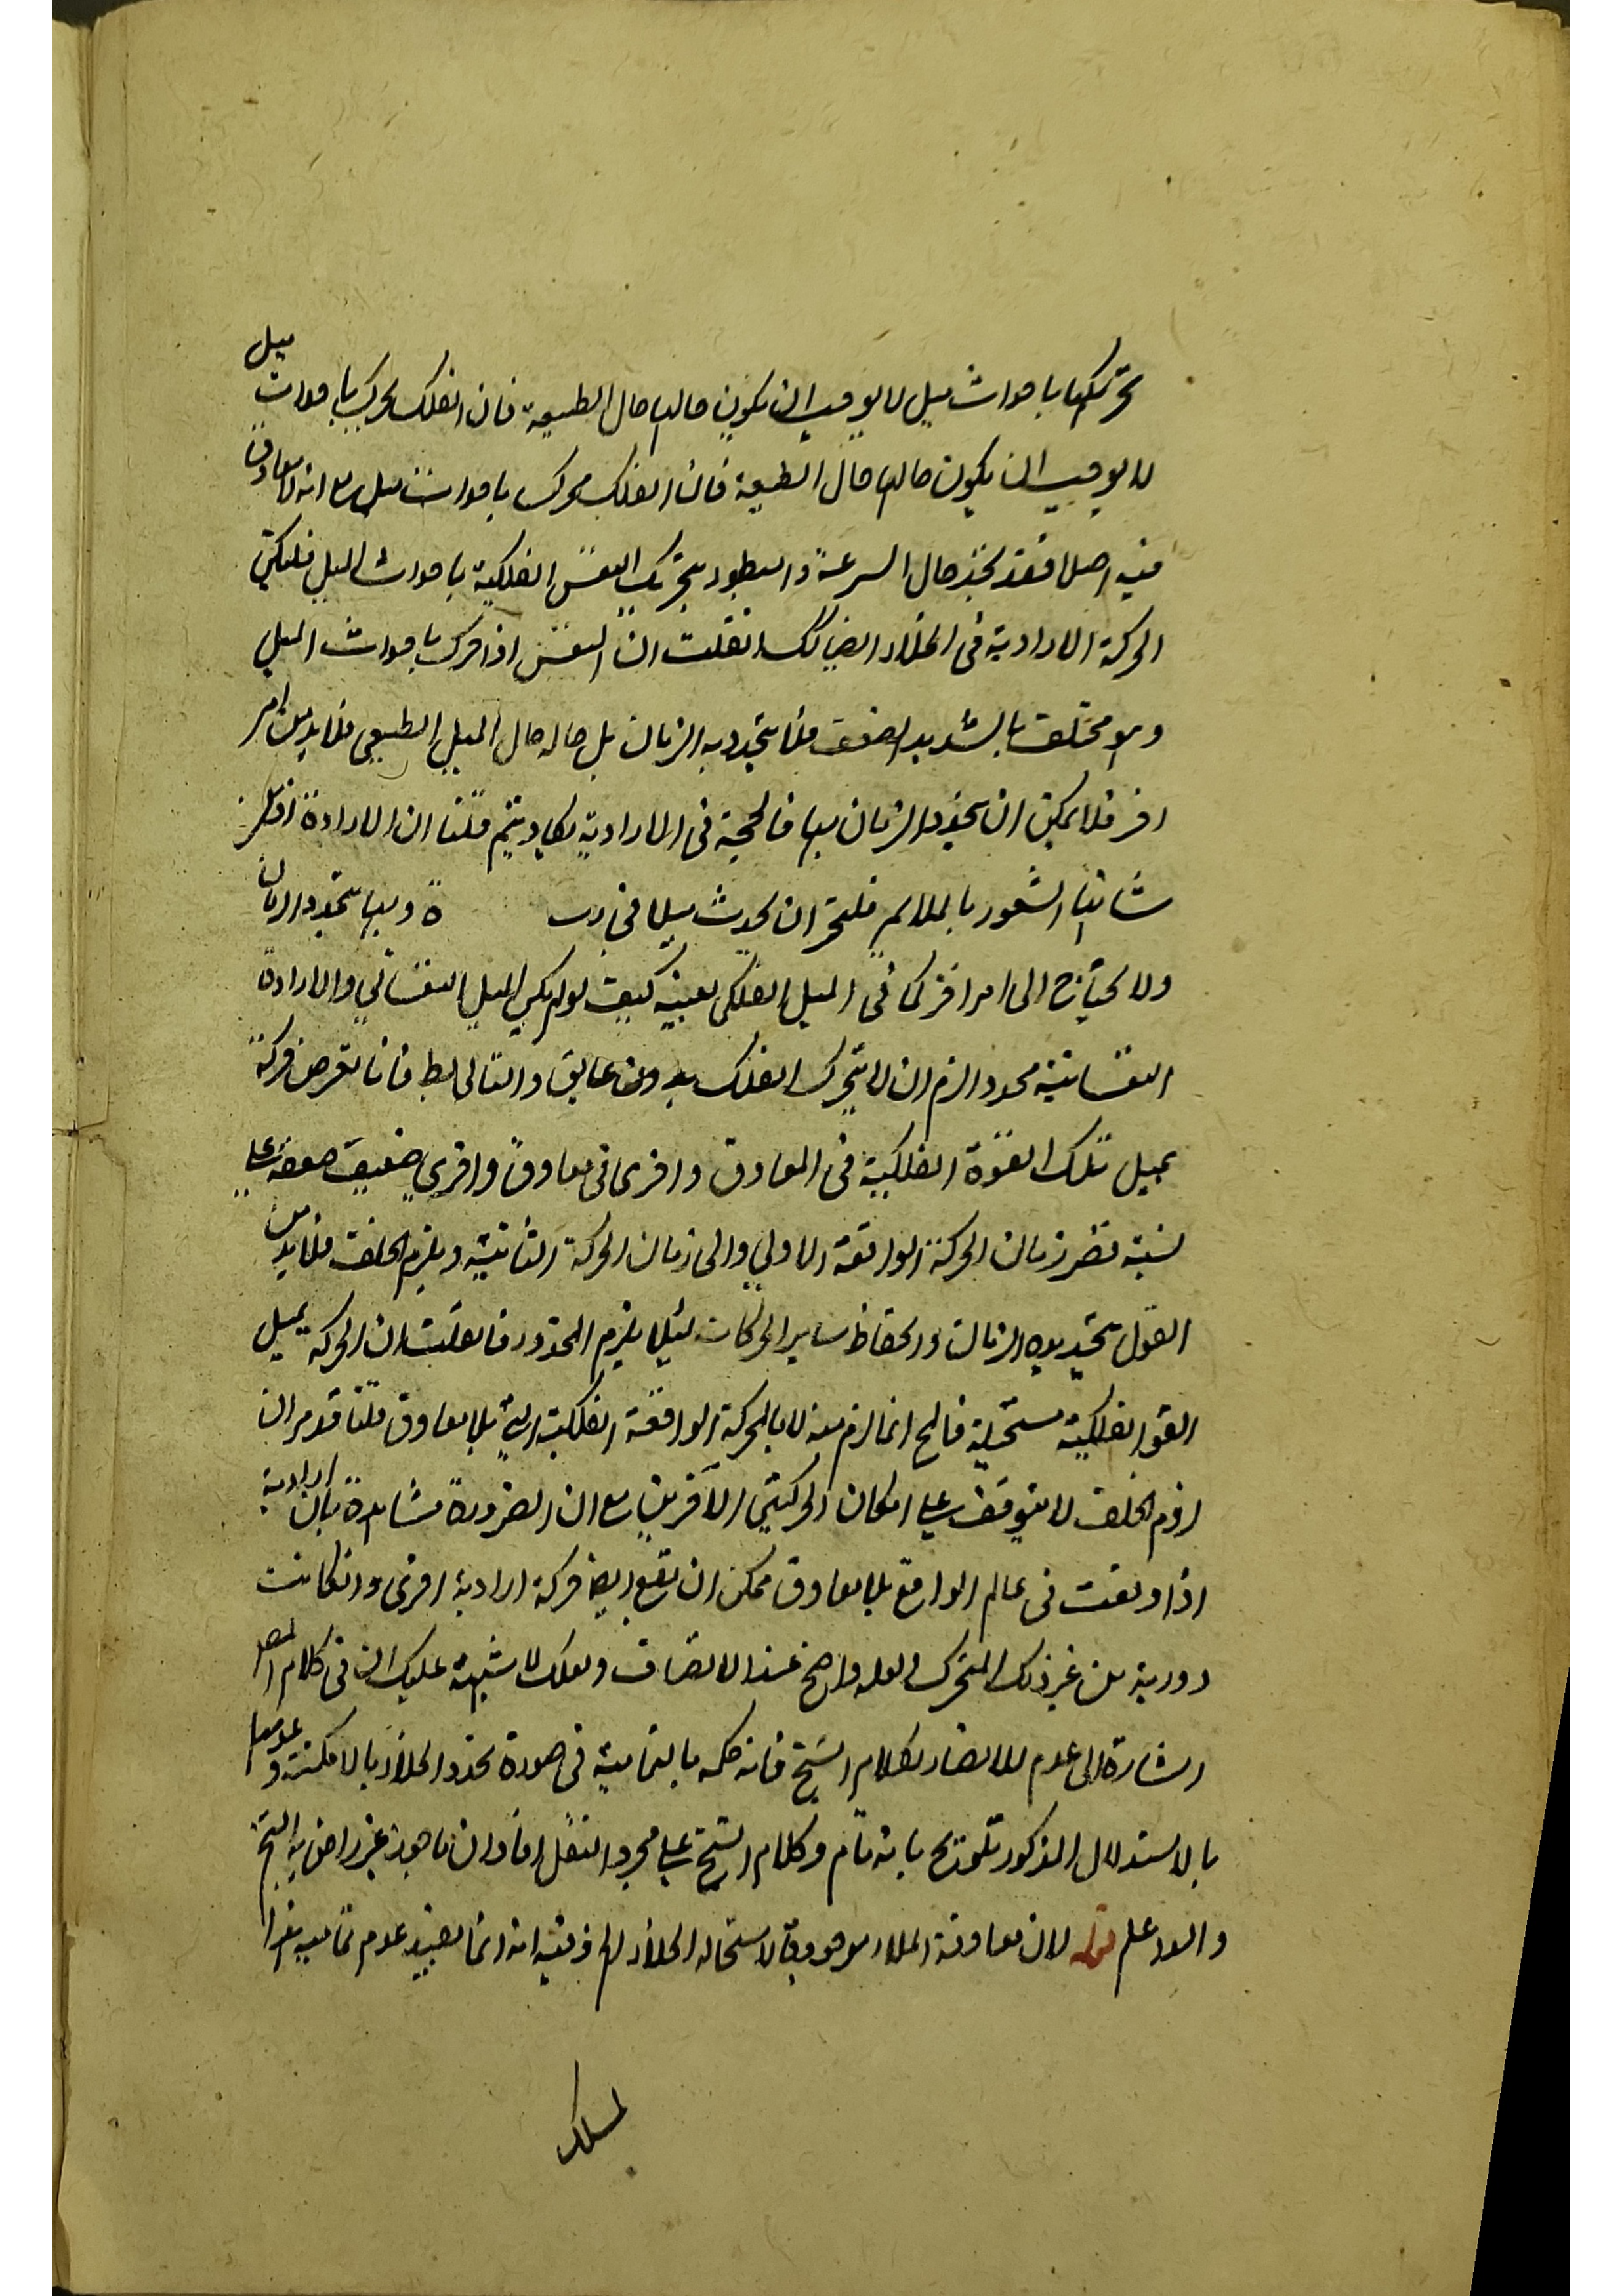 تحريكها باحداث ميل لا يوجب ان يكون حالها حال الطبيعة فان الفلك يحرك باحداث ميل
لا يوجب ان يكون حالها حال الطبيعة فان الفلك محرك باحداث ميل مع انه لا معاوق
فيه اصلا فقد تحدد حال السرعة والبطوء بتحريك النفس الفلكية باحداث الميل فليكن
الحركة الارادية في الخلاء ايضا كك انقلت ان النفس اذا حرك باحداث الميل
وهو مختلف بالشديد الضعف فلا يتحدد به الزمان بل حاله حال الميل الطبيعي فلا بد من امر
اخر فلا يمكن ان يتحدد الزمان بها فالحجة في الارادية يكاد يتم قلنا ان الارادة اذ
شانها الشعور بالملايم فليجز ان يحدث ميلا في ة وبها يتحدد الزمان
ولا يحتاج الى امر اخر كما في الميل الفلكي بعينه كيف لو لم يكن الميل النفساني والارادة
النفسانية محددا لزم ان لا يتحرك الفلك بدون عايق والتالي بط فانا نفرض حركة
بميل تلك القوة الفلكية في المعاوق واخرى في معاوق واخرى ضعيف ضعفه على
نسبة زمان الحركة الواقعة الاولى والى زمان الحركة الثانية ويلزم الخلف فلا بد من
القول بتحديد الزمان وانحفاظ ساير الحركات لئلا يلزم المحذور فانقلت ان الحركة بميل
القوة الفلكية مستحيلة فالمح انما لزم منه لا بالحركة الواقعة الفلكية بلا معاوق قلنا قد مر ان
لزوم الخلف لا يتوقف على امكان الحركتين الاخريين مع ان الضرورة شاهدة بان ارادية
اذا وقعت في عالم الواقع بلا معاوق ممكن ان يقع ايضا حركة ارادية اخرى وان كانت
دورية من غير ذلك المتحرك ولعله واضح عند الانصاف ولعلك لا شبهة عليك ان في كلام المصر
اشارة الى عدم الانضار لكلام الشيخ فانه حكم بالتمامية في صورة تحدد الخلاء بالامكنة و
بالاستدلال المذكور تلويح بانه تام وكلام الشيخ على مجرد النقل افاد ان ما هو به غير راض به الشيخ
والله اعلم قوله لان معاوقة الملاء موجودة لاستحالة الخلاء الخ وفيه انه انما يفيد عدم تمامية هذا
لمسلك